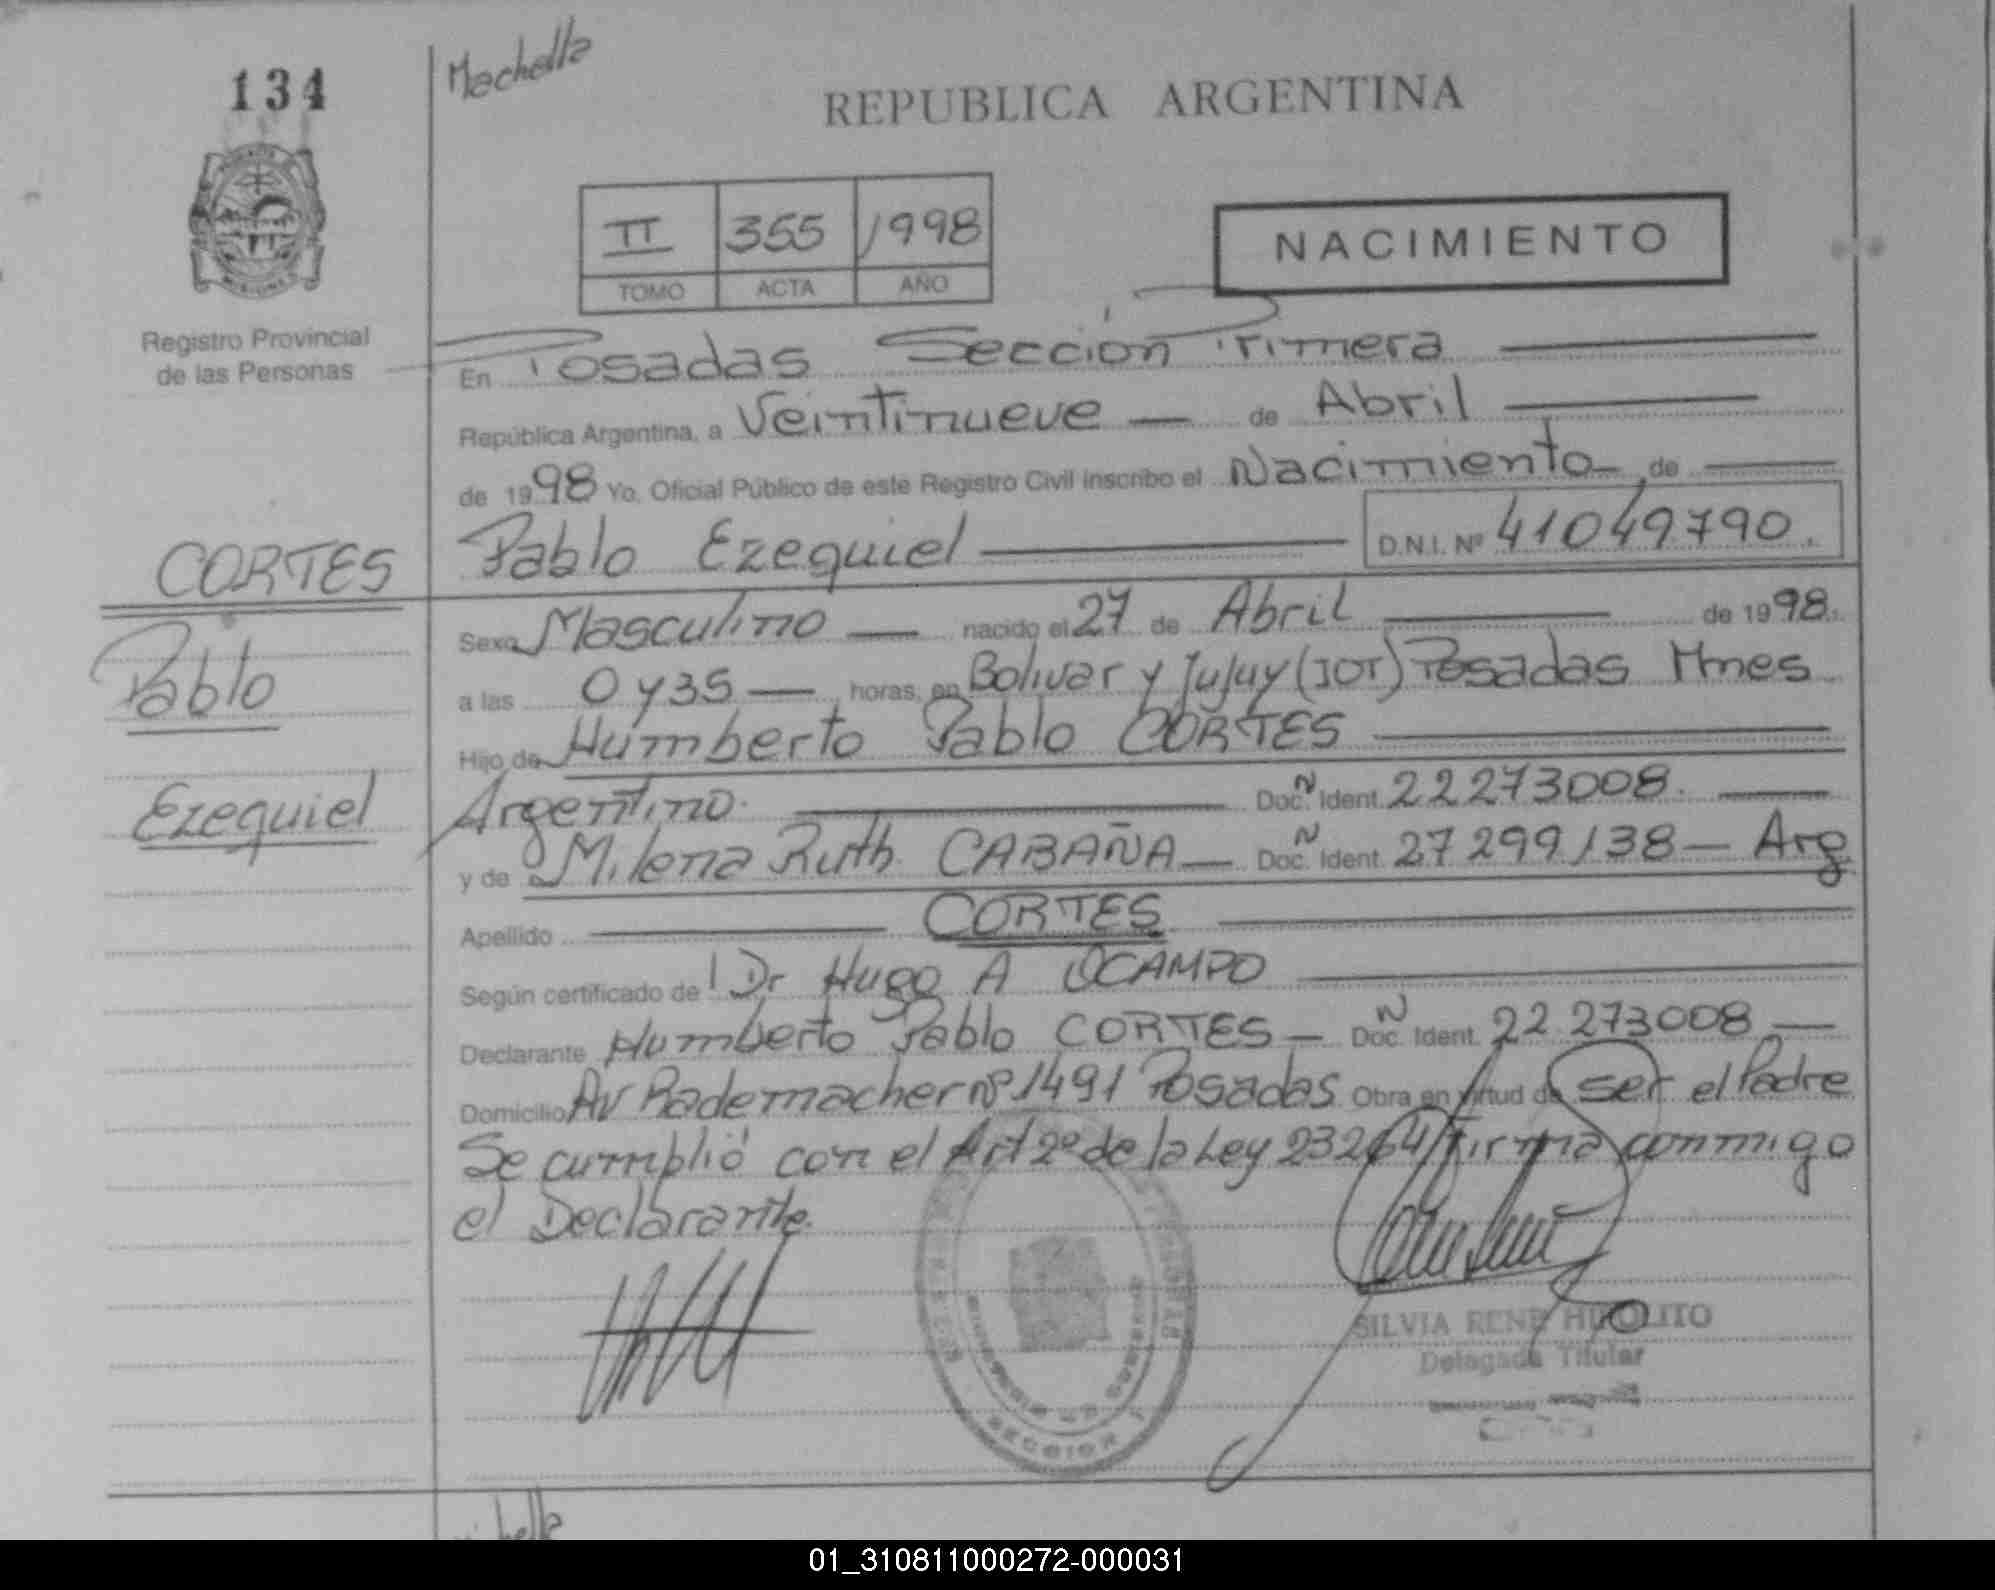 134
Machella
REPUBLICA ARGENTINA
II 355 1998
TOMO ACTA AÑO
NACIMIENTO
Registro Provincial
de las Personas
En Posadas Sección Primera
República Argentina, a Veintinueve — de Abril
de 1998 Yo, Oficial Público de este Registro Civil inscribo el Nacimiento de
CORTES
Pablo Ezequiel D.N.I. Nº 41049790.
Pablo
Ezequiel
Sexo Masculino — nacido el 27 de Abril de 1998.
a las 0 y 35 — horas, en Bolivar y Jujuy (IOT) Posadas Mnes
Hijo de Humberto Pablo CORTES
Argentino. Doc. Ident. Nº 22273008.
y de Milena Ruth CABAÑA — Doc. Ident. N 27299138 — Arg
Apellido CORTES
Según certificado de Dr Hugo A OCAMPO
Declarante Humberto Pablo CORTES — Doc. Ident. N 22.273008 —
Domicilio Av Rademacher nº 1491 Posadas Obra en virtud de ser el Padre
Se cumplió con el Art 2º de la Ley 23264 firma conmigo
el Declarante.
SILVIA RENE HIPOLITO
Delegada Titular
SECCION 1
01_310811000272-000031